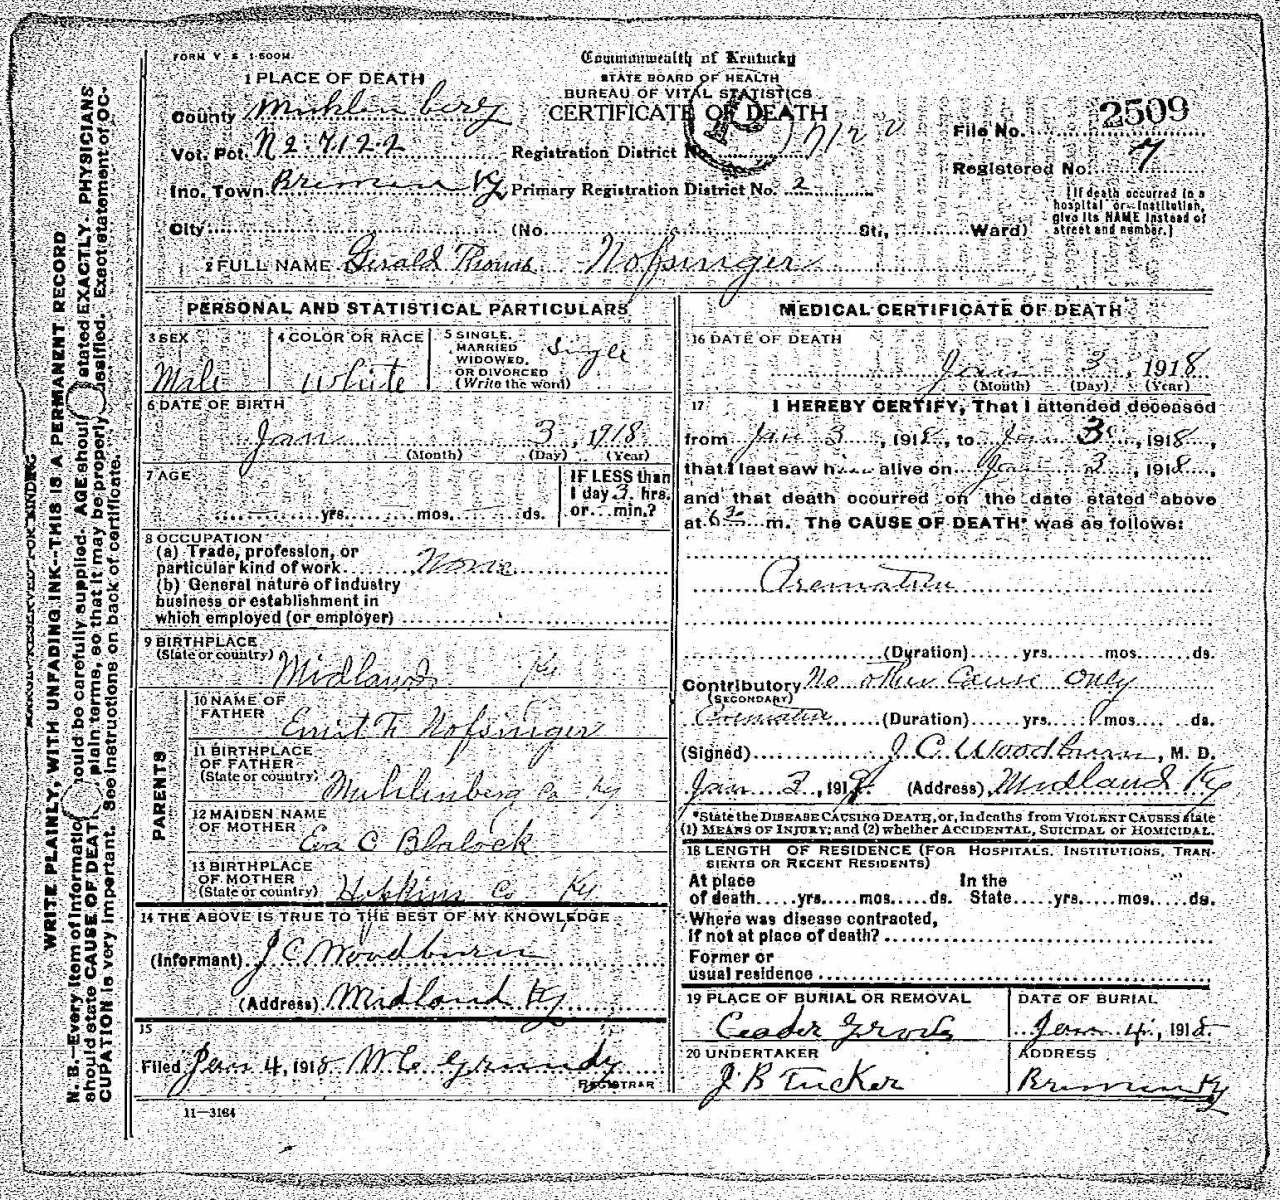 FORM V. S. 1-500M.
Commonwealth of Kentucky
STATE BOARD OF HEALTH
BUREAU OF VITAL STATISTICS
CERTIFICATE OF DEATH
1 PLACE OF DEATH
County Muhlenberg
Vot. Pct. No 7122
Inc. Town Bremen Ky
City (No. St., Ward)
Registration District No.
Primary Registration District No. 2
File No. 2509
Registered No. 7
[If death occurred in a
hospital or institution,
give its NAME instead of
street and number.]
2 FULL NAME Gerald Thomas Nofsinger
PERSONAL AND STATISTICAL PARTICULARS
3 SEX
Male
4 COLOR OR RACE
White
5 SINGLE,
MARRIED
WIDOWED,
OR DIVORCED
(Write the word)
Single
6 DATE OF BIRTH
Jan 3, 1918
(Month) (Day) (Year)
7 AGE
yrs. mos. ds.
IF LESS than
1 day 3 hrs.
or min.?
8 OCCUPATION
(a) Trade, profession, or
particular kind of work None
(b) General nature of industry
business or establishment in
which employed (or employer)
9 BIRTHPLACE
(State or country)
Midland Ky
PARENTS
10 NAME OF
FATHER
Nofsinger
11 BIRTHPLACE
OF FATHER
(State or country)
Muhlenberg Co Ky
12 MAIDEN NAME
OF MOTHER
Eva C Blalock
13 BIRTHPLACE
OF MOTHER
(State or country)
Hopkins Co Ky
14 THE ABOVE IS TRUE TO THE BEST OF MY KNOWLEDGE
(Informant) J C Woodburn
(Address) Midland Ky
15
Filed Jan 4, 1918 W E Grundy
REGISTRAR
11-3164
MEDICAL CERTIFICATE OF DEATH
16 DATE OF DEATH
Jan 3, 1918
(Month) (Day) (Year)
17 I HEREBY CERTIFY, That I attended deceased
from Jan 3, 1918, to Jan 3, 1918,
that I last saw him alive on Jan 3, 1918,
and that death occurred on the date stated above
at 6 30 m. The CAUSE OF DEATH* was as follows:
Premature
(Duration) yrs. mos. ds.
Contributory No other Cause only
(SECONDARY)
Premature (Duration) yrs. mos. ds.
(Signed) J. C. Woodburn, M. D.
Jan 3, 1918 (Address) Midland Ky
*State the DISEASE CAUSING DEATH, or, in deaths from VIOLENT CAUSES state
(1) MEANS OF INJURY; and (2) whether ACCIDENTAL, SUICIDAL or HOMICIDAL.
18 LENGTH OF RESIDENCE (FOR HOSPITALS, INSTITUTIONS, TRAN-
SIENTS OR RECENT RESIDENTS)
At place In the
of death yrs. mos. ds. State yrs. mos. ds.
Where was disease contracted,
If not at place of death?
Former or
usual residence
19 PLACE OF BURIAL OR REMOVAL
Ceader Grove
DATE OF BURIAL
Jan 4, 1918
20 UNDERTAKER
J B Tucker
ADDRESS
Bremen Ky
MARGIN RESERVED FOR BINDING
WRITE PLAINLY, WITH UNFADING INK--THIS IS A PERMANENT RECORD
N. B.--Every item of information should be carefully supplied. AGE should stated EXACTLY. PHYSICIANS
should state CAUSE OF DEATH plain terms, so that it may be properly classified. Exact statement of OC-
CUPATION is very important. See instructions on back of certificate.